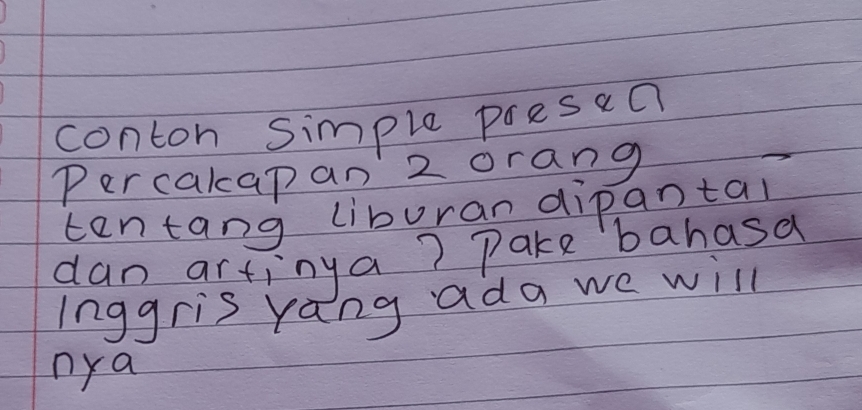 conton simple presen
Percakapan 2 orang
tentang liburan dipantai
dan artinya ? Pake bahasa
Inggris yang ada we will
nya